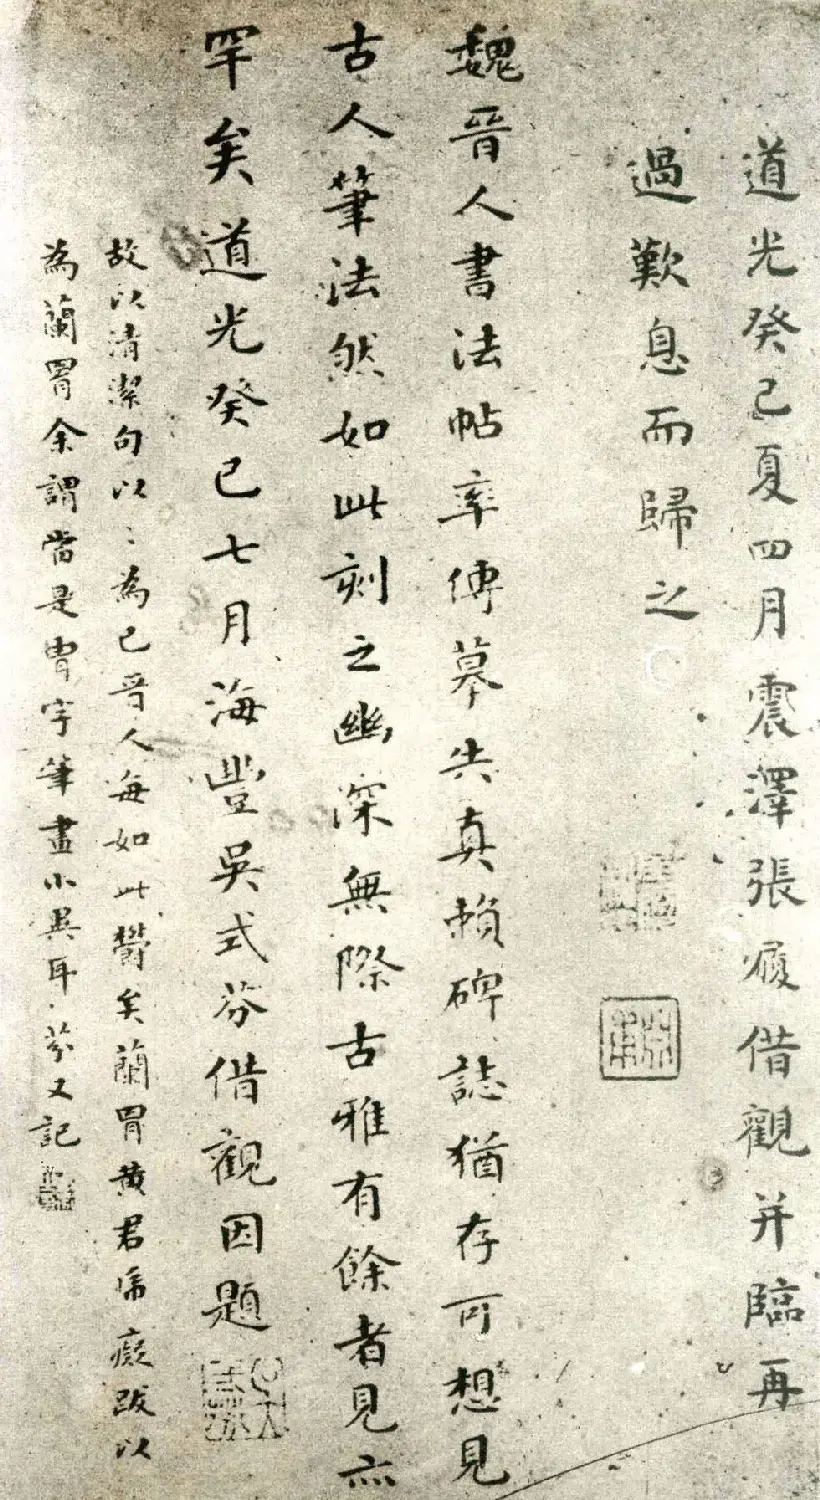 道光癸巳夏四月震澤張履借觀并臨再
過歎息而歸之
魏晉人書法帖率傳摹失真賴碑誌猶存可想見
古人筆法然如此刻之幽深無際古雅有餘者見亦
罕矣道光癸巳七月海豐吳式芬借觀因題
故以清潔句以〻為已晉人每如此鬱矣蘭胃黃君 癡跋以
為蘭胃余謂當是胄字筆畫小異耳芬又記